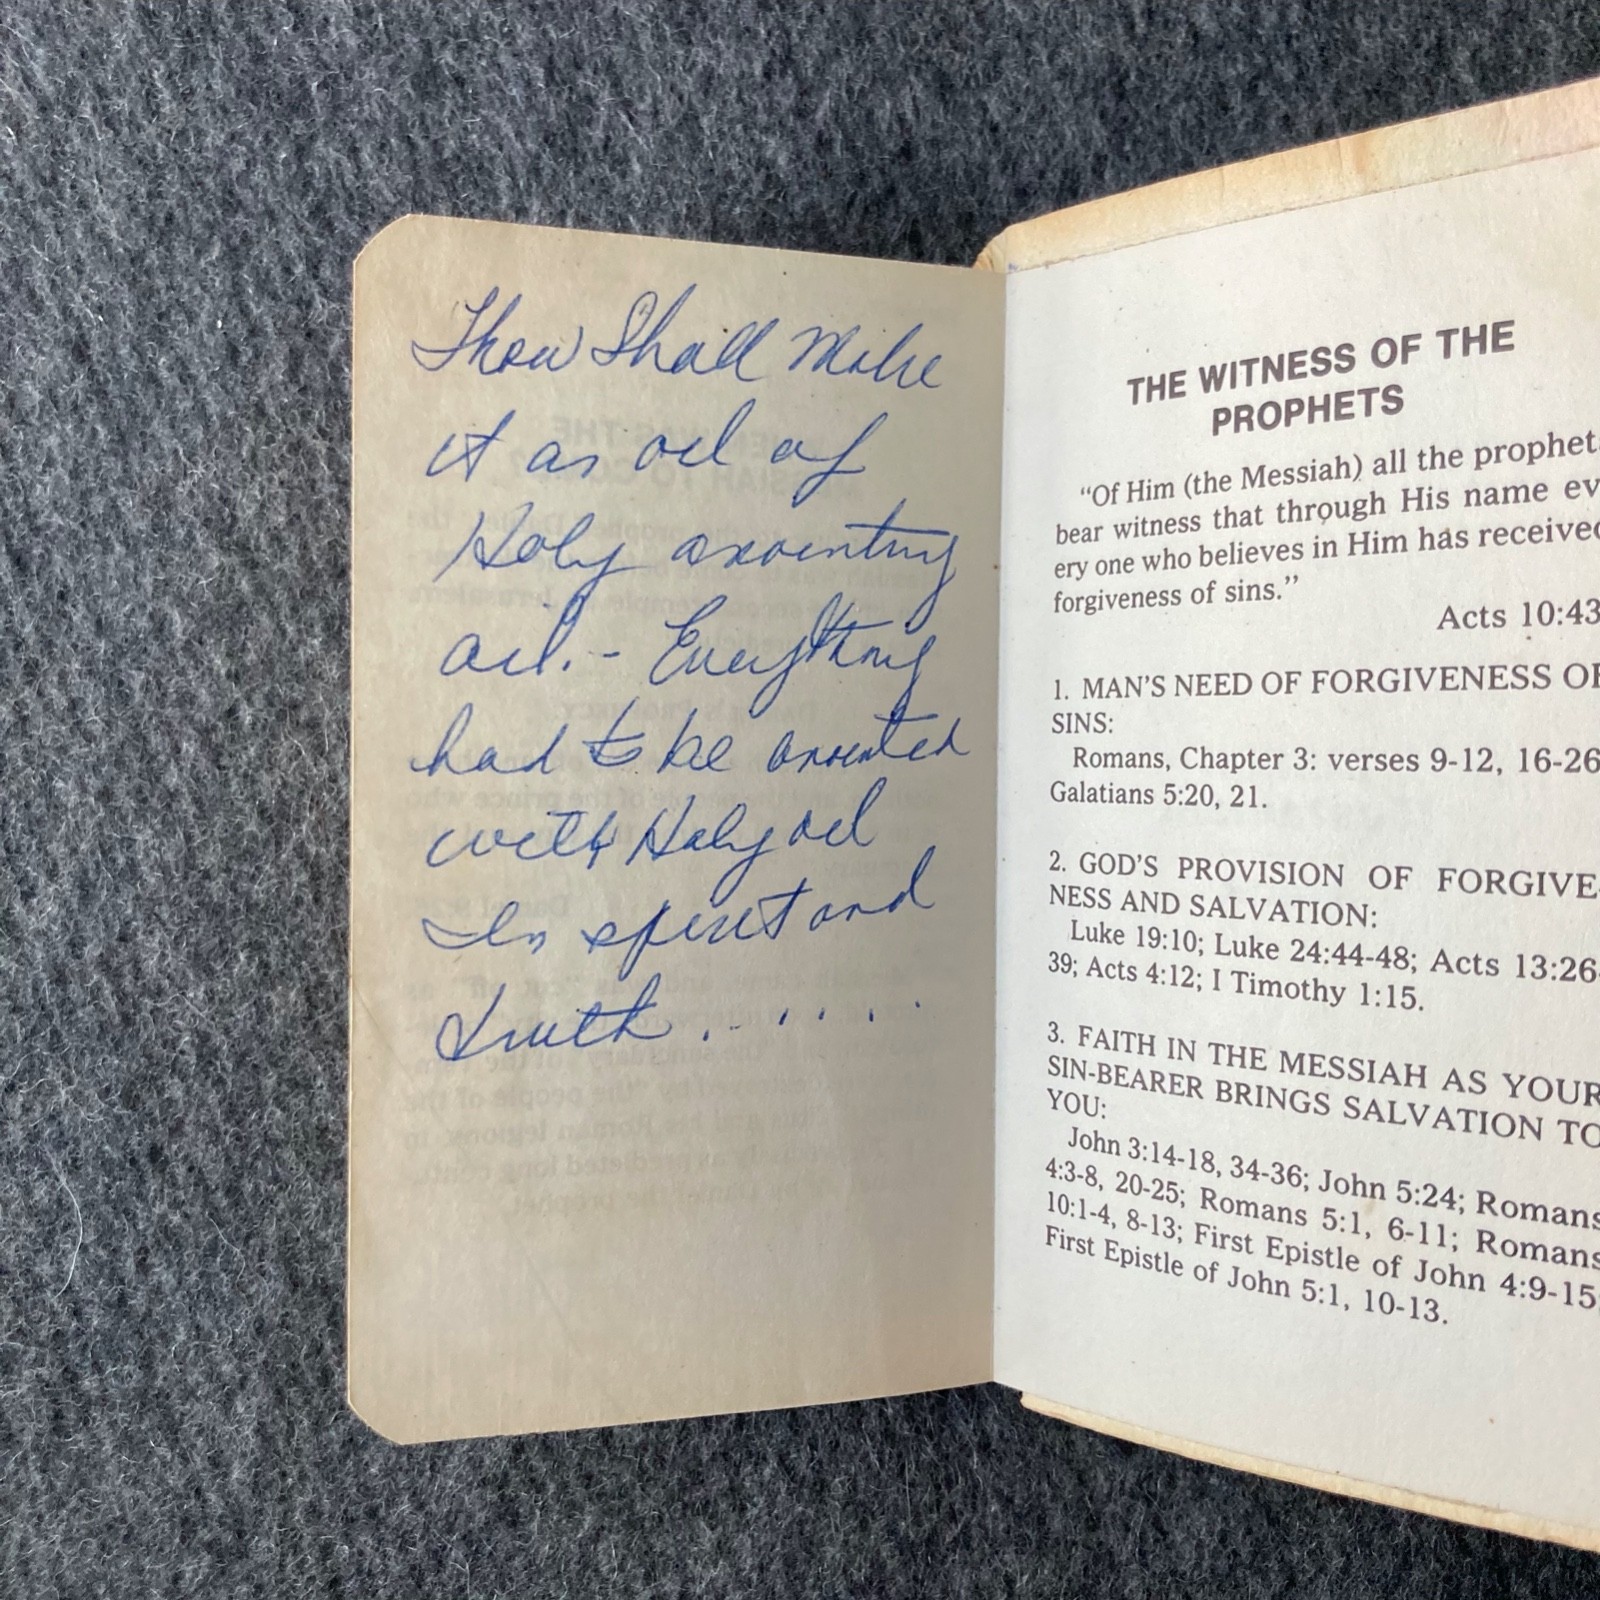 Thou Shall Make
it an oil of
Holy anointing
oil. - Everything
had to be anointed
with Holy oil
In spirit and
truth . . . . . .
THE WITNESS OF THE
PROPHETS
"Of Him (the Messiah) all the prophets
bear witness that through His name ev-
ery one who believes in Him has received
forgiveness of sins."
Acts 10:43
1. MAN'S NEED OF FORGIVENESS OF
SINS:
Romans, Chapter 3: verses 9-12, 16-26
Galatians 5:20, 21.
2. GOD'S PROVISION OF FORGIVE-
NESS AND SALVATION:
Luke 19:10; Luke 24:44-48; Acts 13:26-
39; Acts 4:12; I Timothy 1:15.
3. FAITH IN THE MESSIAH AS YOUR
SIN-BEARER BRINGS SALVATION TO
YOU:
John 3:14-18, 34-36; John 5:24; Romans
4:3-8, 20-25; Romans 5:1, 6-11; Romans
10:1-4, 8-13; First Epistle of John 4:9-15;
First Epistle of John 5:1, 10-13.